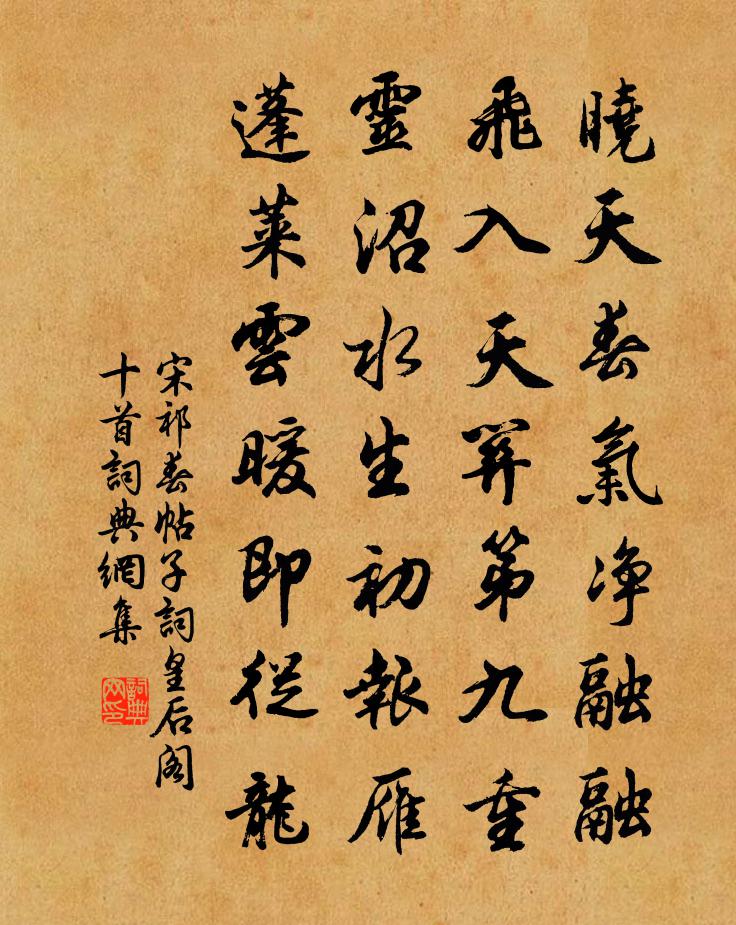 曉天春氣净融融
飛入天關第九重
靈沼水生初報雁
蓬萊雲暖即從龍
宋祁春帖子詞皇后閣
十首詞典網集
詞典網印